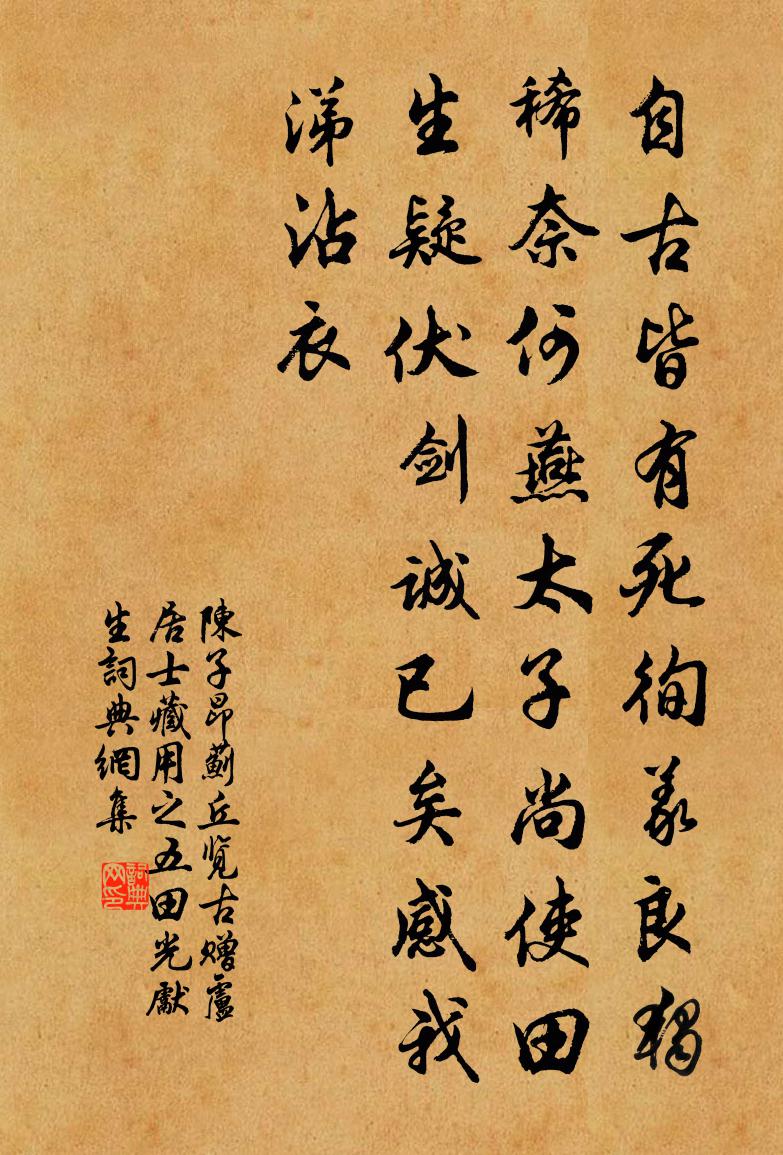 自古皆有死徇義良獨
稀奈何燕太子尚使田
生疑伏劍誠已矣感我
涕沾衣
陳子昂薊丘覽古贈盧
居士藏用之五田光獻
生詞典網集
詞典
网印